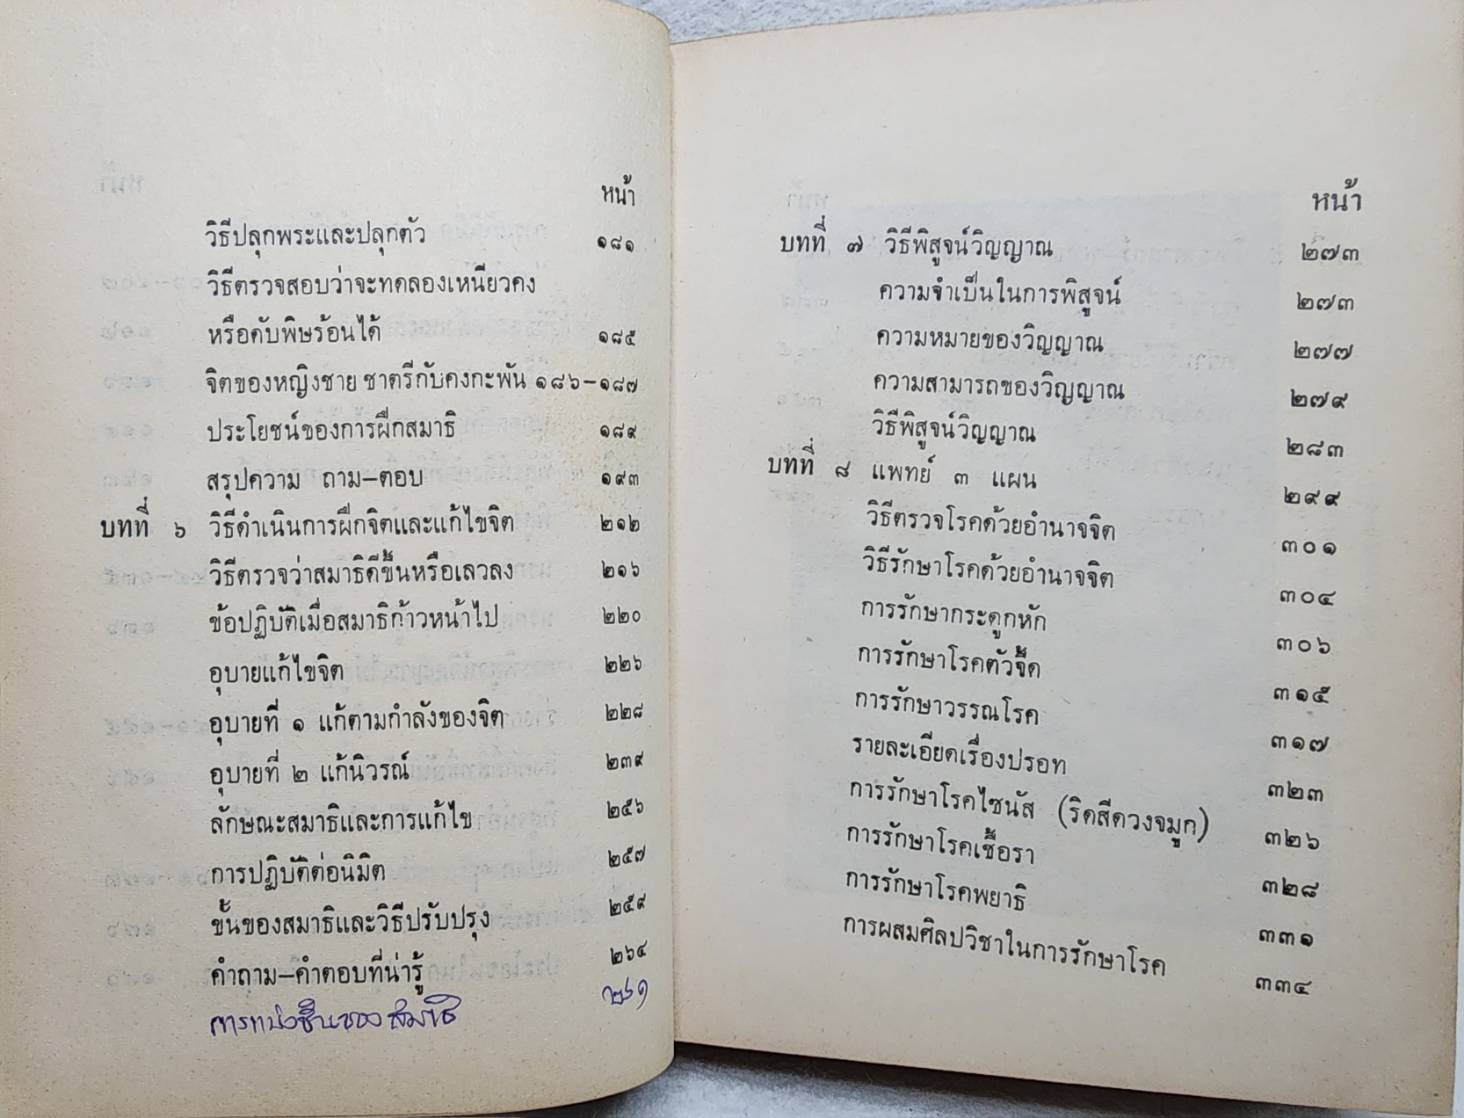 หน้า
วิธีปลุกพระและปลุกตัว ๑๘๑
วิธีตรวจสอบว่าจะทดลองเหนียวคง
หรือดับพิษร้อนได้ ๑๘๕
จิตของหญิงชาย ชาตรีกับคงกะพัน ๑๘๖–๑๘๗
ประโยชน์ของการฝึกสมาธิ ๑๘๙
สรุปความ ถาม–ตอบ ๑๙๓
บทที่ ๖ วิธีดำเนินการฝึกจิตและแก้ไขจิต ๒๑๒
วิธีตรวจว่าสมาธิดีขึ้นหรือเลวลง ๒๑๖
ข้อปฏิบัติเมื่อสมาธิก้าวหน้าไป ๒๒๐
อุบายแก้ไขจิต ๒๒๖
อุบายที่ ๑ แก้ตามกำลังของจิต ๒๒๘
อุบายที่ ๒ แก้นิวรณ์ ๒๓๙
ลักษณะสมาธิและการแก้ไข ๒๕๖
การปฏิบัติต่อนิมิต ๒๕๗
ขั้นของสมาธิและวิธีปรับปรุง ๒๕๙
คำถาม–คำตอบที่น่ารู้ ๒๖๔
การแบ่งชั้นของสมาธิ ๒๖๑
หน้า
บทที่ ๗ วิธีพิสูจน์วิญญาณ ๒๗๓
ความจำเป็นในการพิสูจน์ ๒๗๓
ความหมายของวิญญาณ ๒๗๗
ความสามารถของวิญญาณ ๒๗๙
วิธีพิสูจน์วิญญาณ ๒๘๓
บทที่ ๘ แพทย์ ๓ แผน ๒๙๙
วิธีตรวจโรคด้วยอำนาจจิต ๓๐๑
วิธีรักษาโรคด้วยอำนาจจิต ๓๐๔
การรักษากระดูกหัก ๓๐๖
การรักษาโรคตัวจี๊ด ๓๑๕
การรักษาวรรณโรค ๓๑๗
รายละเอียดเรื่องปรอท ๓๒๓
การรักษาโรคไซนัส (ริดสีดวงจมูก) ๓๒๖
การรักษาโรคเชื้อรา ๓๒๘
การรักษาโรคพยาธิ ๓๓๑
การผสมศิลปวิชาในการรักษาโรค ๓๓๔